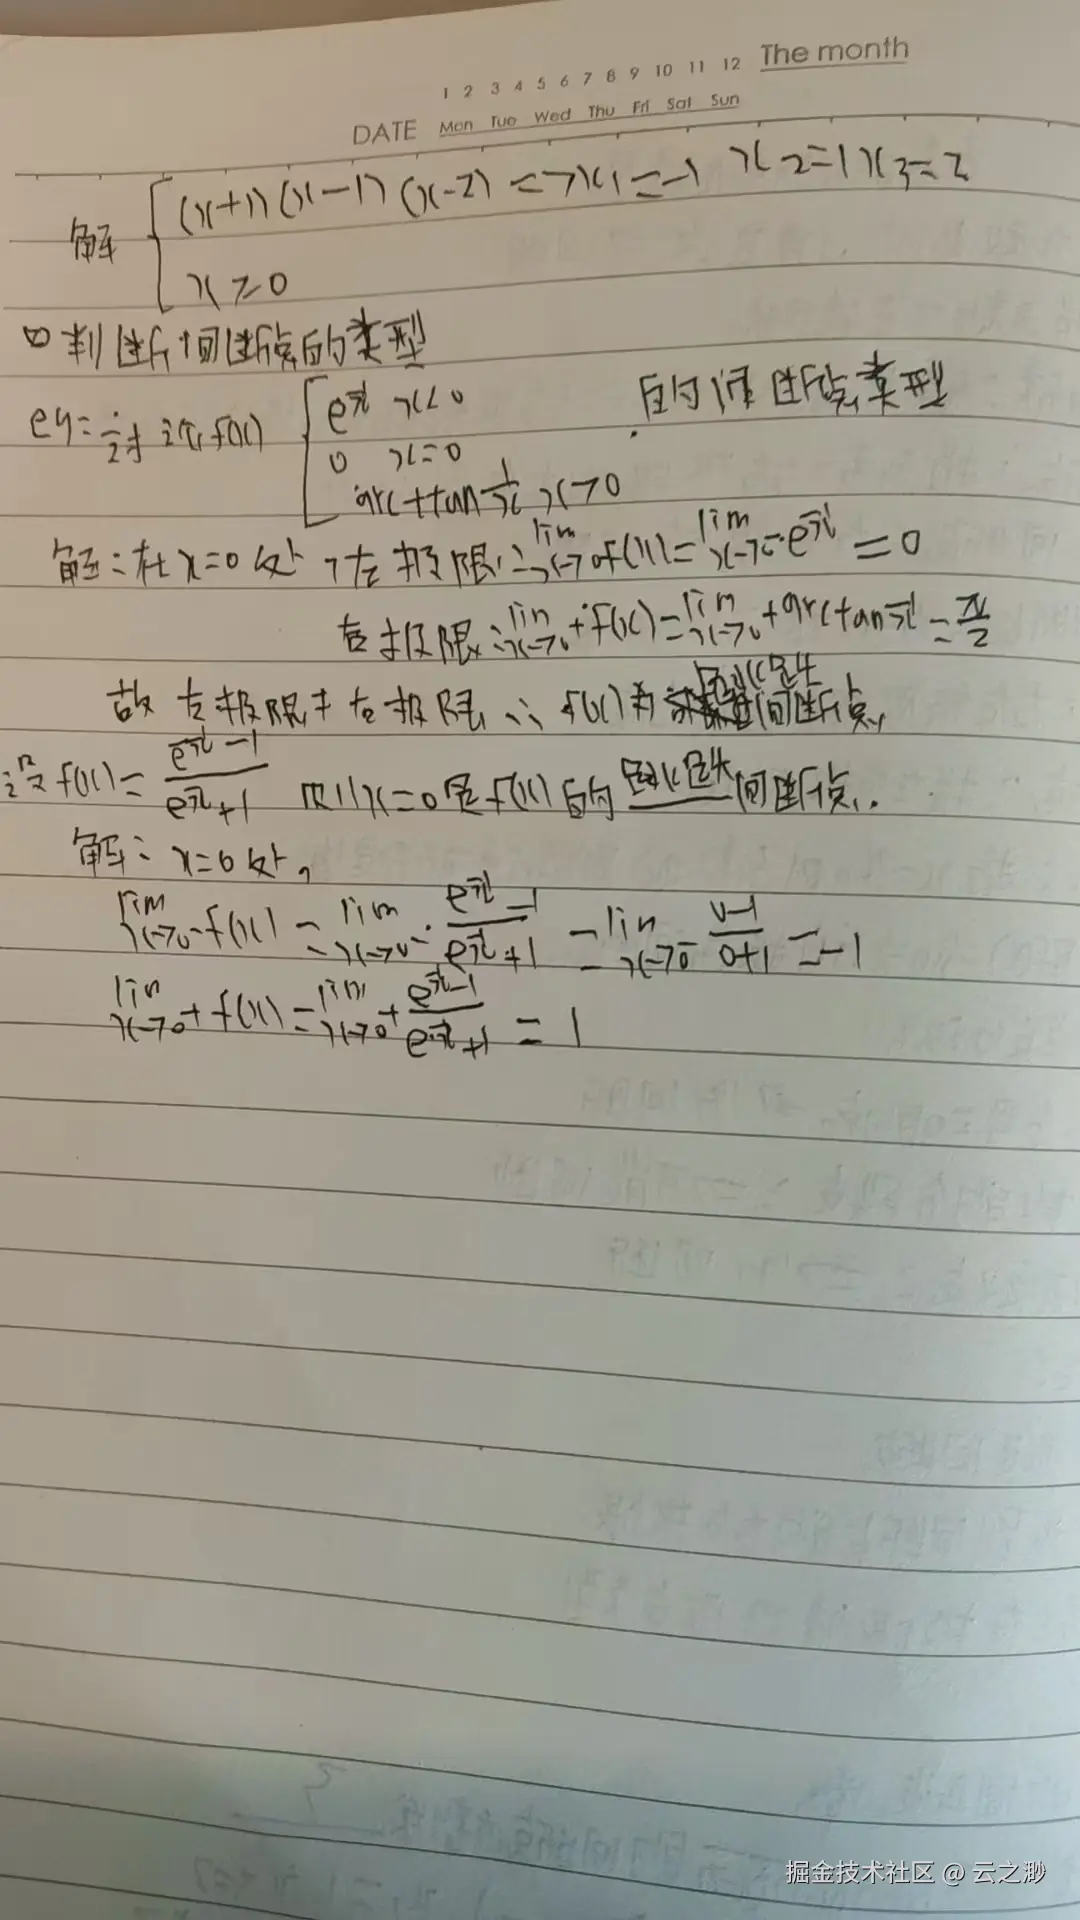 1 2 3 4 5 6 7 8 9 10 11 12 The month
DATE Mon Tue Wed Thu Fri Sat Sun
解 { (x+1)(x-1)(x-2) => x₁=-1 x₂=1 x₃=2
x≥0
判断间断点的类型
eg: 讨论f(x) { e^(1/x) x<0 的间断点类型
0 x=0
arctan 1/x x>0
解:在x=0处,左极限:lim x→0⁻ f(x)=lim x→0⁻ e^(1/x)=0
右极限:lim x→0⁺ f(x)=lim x→0⁺ arctan 1/x = π/2
故左极限≠右极限 ∴f(x)为跳跃间断点
设f(x)= (e^(1/x)-1)/(e^(1/x)+1) 则x=0是f(x)的跳跃间断点.
解:x=0处,
lim x→0⁻ f(x)=lim x→0⁻ (e^(1/x)-1)/(e^(1/x)+1) =lim x→0⁻ (0-1)/(0+1) =-1
lim x→0⁺ f(x)=lim x→0⁺ (e^(1/x)-1)/(e^(1/x)+1) =1
掘金技术社区 @ 云之渺